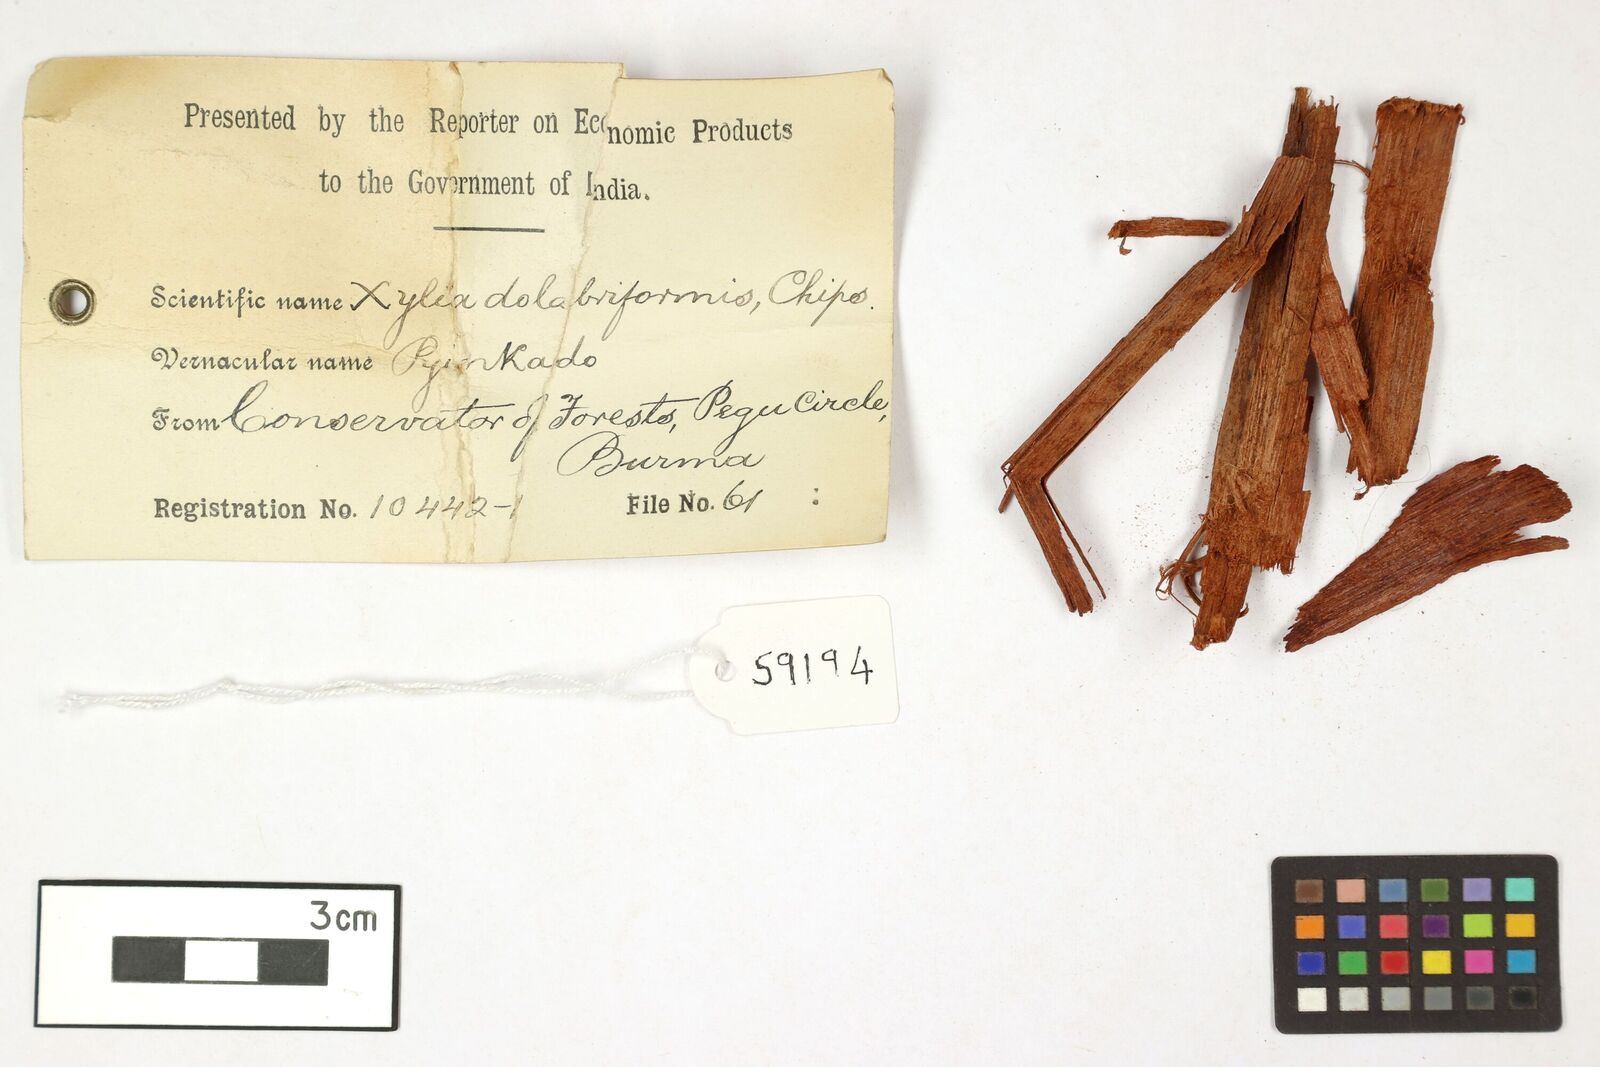 Presented by the Reporter on Economic Products
to the Government of India.
Scientific name Xylia dolabriformis, Chips.
Vernacular name Pyinkado
From Conservator of Forests, Pegu Circle,
Burma
Registration No. 10442-1 File No. 61 :
59194
3cm